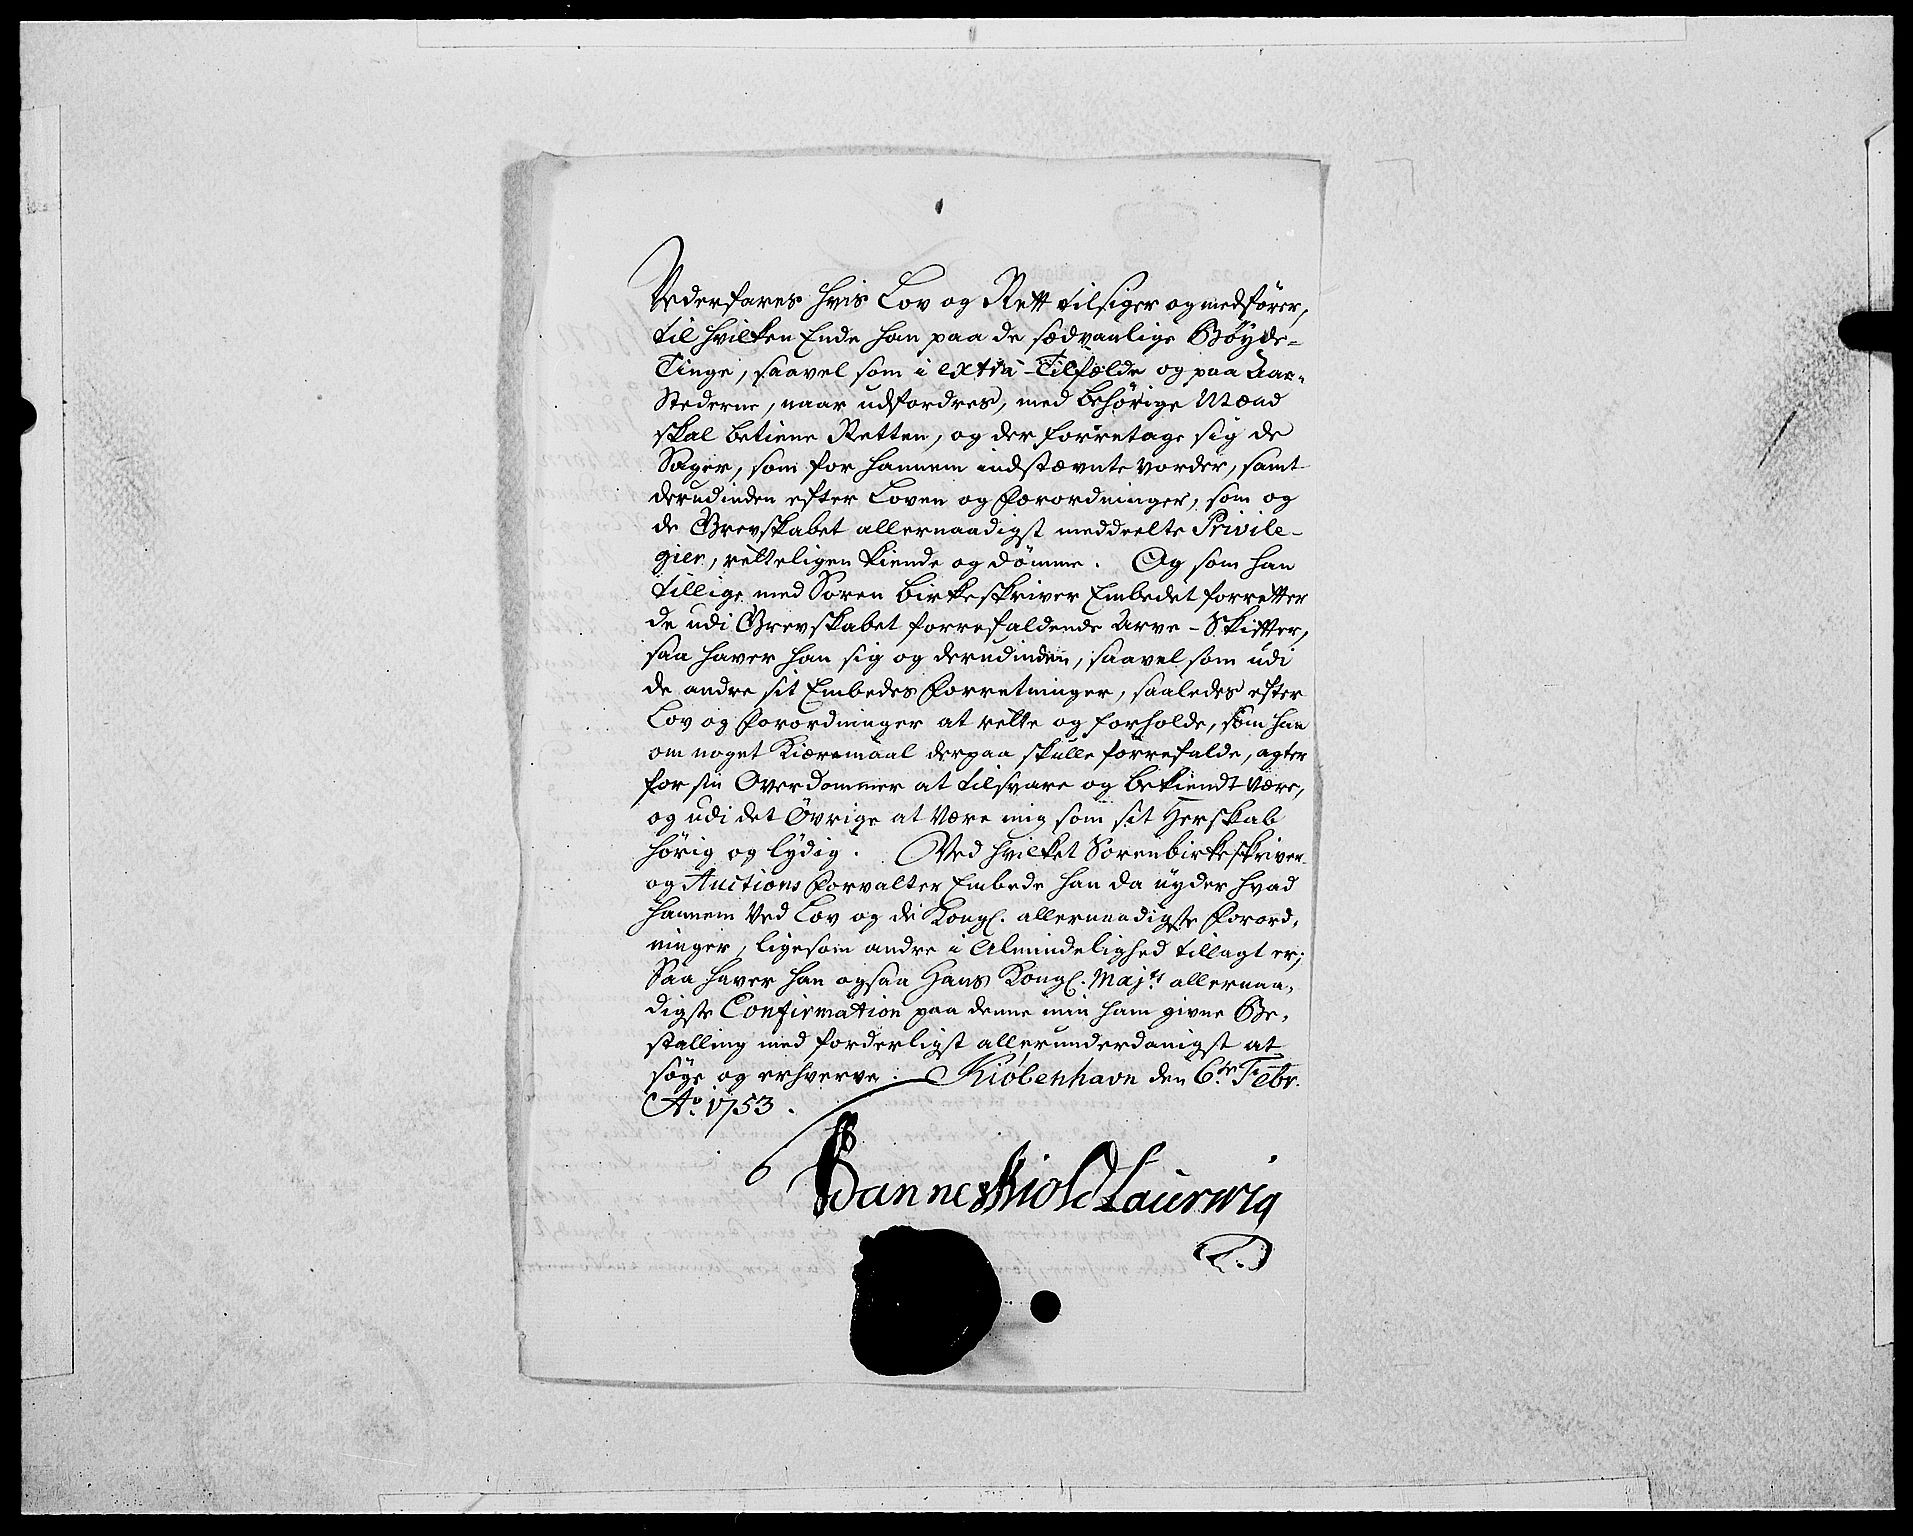 Vederfares hvis Lov og Rett tilsiger og medfører,
til hvilken Ende han paa de sædvanlige Bøyde-
Tinge, saavel som i extra-Tilfælde og paa Aae-
Stederne, naar udfordres, med behørige Mænd
skal betiene Retten, og der foretage sig de
Sager, som for hannem indstævnte vorder, samt
derudinden efter Loven og Forordninger, som og
de Grevskabet allernaadigst meddeelte Privile-
gier, retteligen kiende og dømme. Og som han
tillige med Soren birkeskriver Embedet forretter
de udi Grevskabet forrefaldende Arve-Skifter,
saa haver han sig og derudinden, saavel som udi
de andre sit Embedes Forretninger, saaledes efter
Lov og Forordninger at rette og forholde, som han
om noget Kiæremaal derpaa skulle forrefalde, agter
for sin Overdommer at tilsvare og bekiendt være,
og udi det Øvrige at være mig som sit Herskab
hørig og lydig. Ved hvilket Sorenbirkeskriver-
og Auctions Forvalter Embede han da nyder hvad
hannem ved Lov og de Kongl. allernaadigste Forord-
ninger, ligesom andre i Almindelighed tillagt er;
Saa haver han ogsaa Hans Kongl. Majts allernaa-
digste Confirmation paa denne min ham givne Be-
stalling med forderligst allerunderdanigst at
søge og erhverve. Kiøbenhavn den 6te Febr.
Ao 1753.
Danneskiold Laurwig